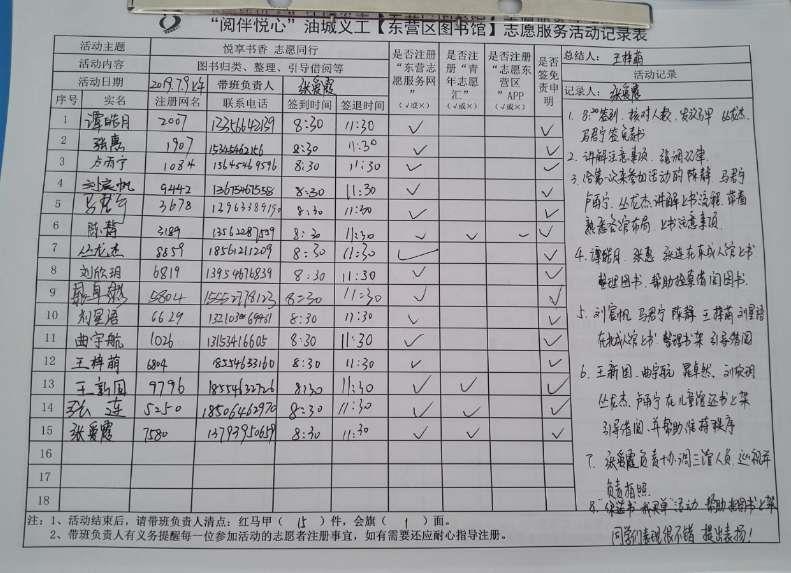 “阅伴悦心”油城义工【东营区图书馆】志愿服务活动记录表
活动主题 悦享书香 志愿同行
活动内容 图书归类、整理、引导借阅等
活动日期 2019.7.9 带班负责人 张爱霞
是否注册“东营志愿服务网”(√或×) 是否注册“青年志愿汇”(√或×) 是否注册“志愿东营区”APP(√或×) 是否签免责申明
总结人: 王梓萌
活动记录
记录人: 张爱霞
序号 实名 注册网名 联系电话 签到时间 签退时间
1 谭皓月 2007 8:30 11:30 √ √
2 张惠 1907 8:30 11:30 √ √
3 卢雨宁 1084 15645469596 8:30 11:30 √ √
4 刘宸帆 9442 13675467558 8:30 11:30 √ √
5 马君宁 3678 8:30 11:30 √ √
6 陈静 3189 13562287509 8:30 11:30 √ √ √ √
7 丛龙杰 8659 18561211209 8:30 11:30 √ √
8 刘欣玥 6819 13954676839 8:30 11:30 √ √
9 5804 8:30 11:30 √ √
10 刘星语 6629 8:30 11:30 √ √
11 曲宇航 1026 13153416605 8:30 11:30 √ √
12 王梓萌 6804 18554633160 8:30 11:30 √ √
13 王新国 9796 18554632726 8:30 11:30 √ √ √
14 张连 5250 18506462970 8:30 11:30 √ √ √
15 张爱霞 7580 13793950659 8:30 11:30 √ √ √
16
17
18
1. 8:20签到、核对人数、发放马甲 丛龙杰、
马君宁签免责书
2. 讲解注意事项、强调纪律
3. 给第一次来参加活动的陈静 马君宁
卢雨宁、丛龙杰讲解上书流程、带着
熟悉各馆布局 上书注意事项.
4. 谭皓月、张惠 张连在东成人馆上书
整理图书、帮助检索借阅图书.
5. 刘宸帆 马君宁 陈静 王梓萌 刘星语
在北成人馆上书 整理书架 引导借阅
6. 王新国、曲宇航 刘欣玥
丛龙杰、卢雨宁在儿童馆还书上架
引导借阅、并帮助维持秩序
7. 张爱霞负责协调三馆人员、巡视并
负责拍照.
8. 活动 帮助把图书上架
同学们表现很不错 提出表扬!
注:1、活动结束后,请带班负责人清点:红马甲( 15 )件,会旗( 1 )面。
2、带班负责人有义务提醒每一位参加活动的志愿者注册事宜,如有需要还应耐心指导注册。